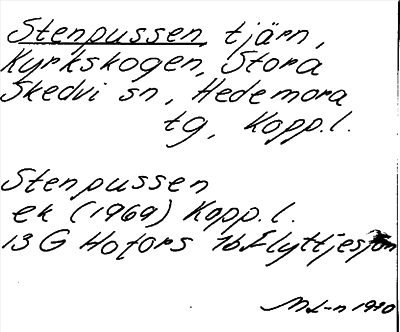 Stenpussen, tjärn,
Kyrkskogen, Stora
Skedvi sn, Hedemora
tg, Kopp.l.
Stenpussen
ek (1969) Kopp.l.
13 G Hofors 1b Flyttjesjön